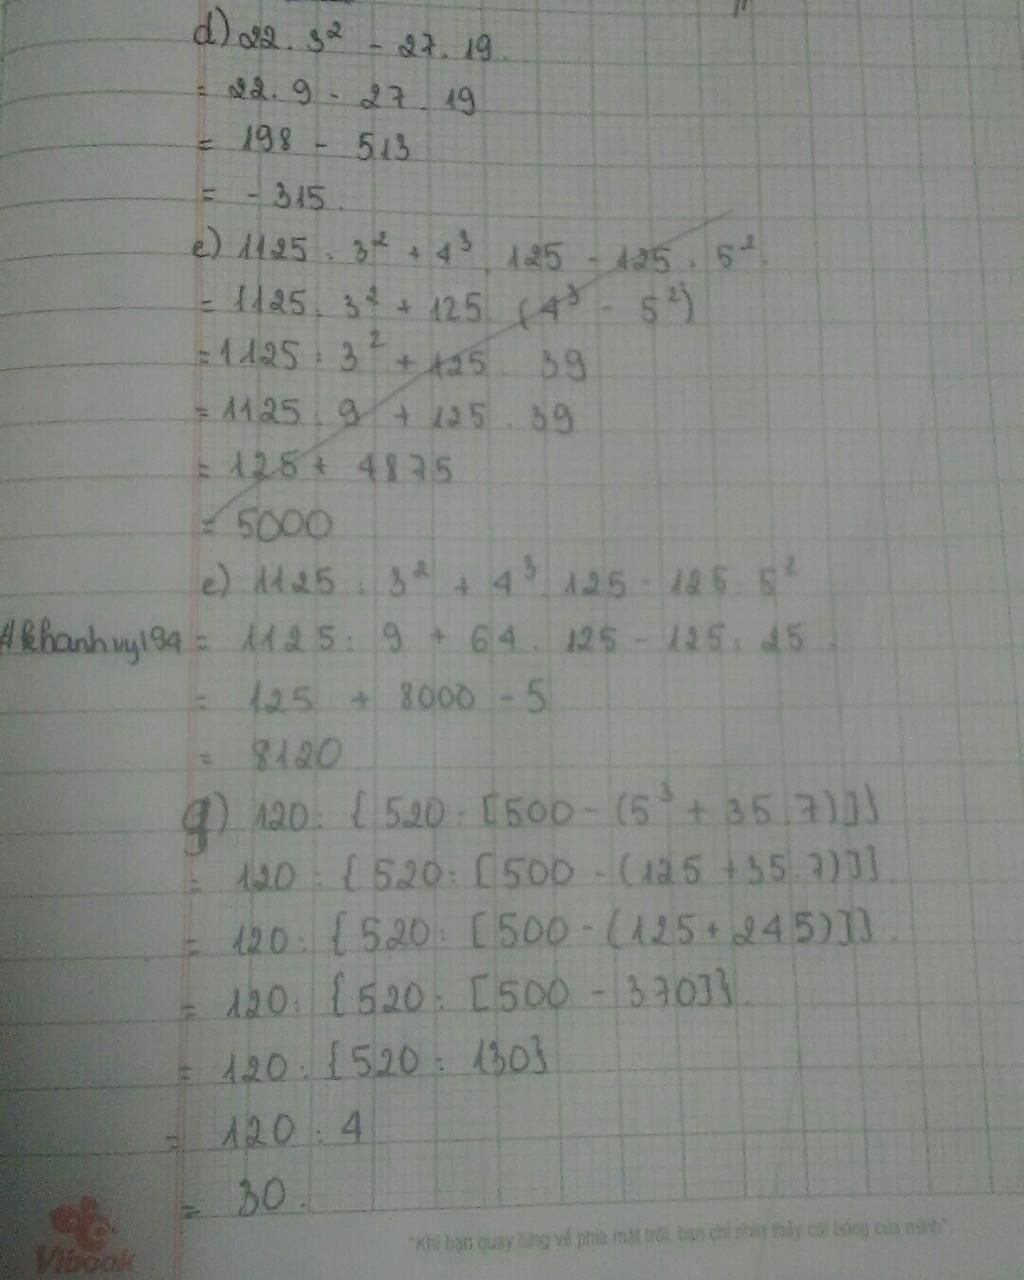 d) 22 . 3² - 27 . 19.
= 22 . 9 - 27 . 19
= 198 - 513
= - 315.
e) 1125 : 3² + 4³ . 125 - 125 : 5².
= 1125 : 3² + 125 . (4³ - 5²)
= 1125 : 3² + 125 . 39
= 1125 : 9 + 125 . 39
= 125 + 4875
= 5000
e) 1125 : 3² + 4³ . 125 - 125 : 5²
#khanhvy194 = 1125 : 9 + 64 . 125 - 125 : 25.
= 125 + 8000 - 5
= 8120
g) 120 : {520 : [500 - (5³ + 35.7)]}
= 120 : {520 : [500 - (125 + 35.7)]}
= 120 : {520 : [500 - (125 + 245)]}.
= 120 : {520 : [500 - 370]}.
= 120 : {520 : 130}
= 120 : 4
= 30.
Vibook
"Khi bạn quay lưng về phía mặt trời, bạn chỉ nhìn thấy cái bóng của mình"